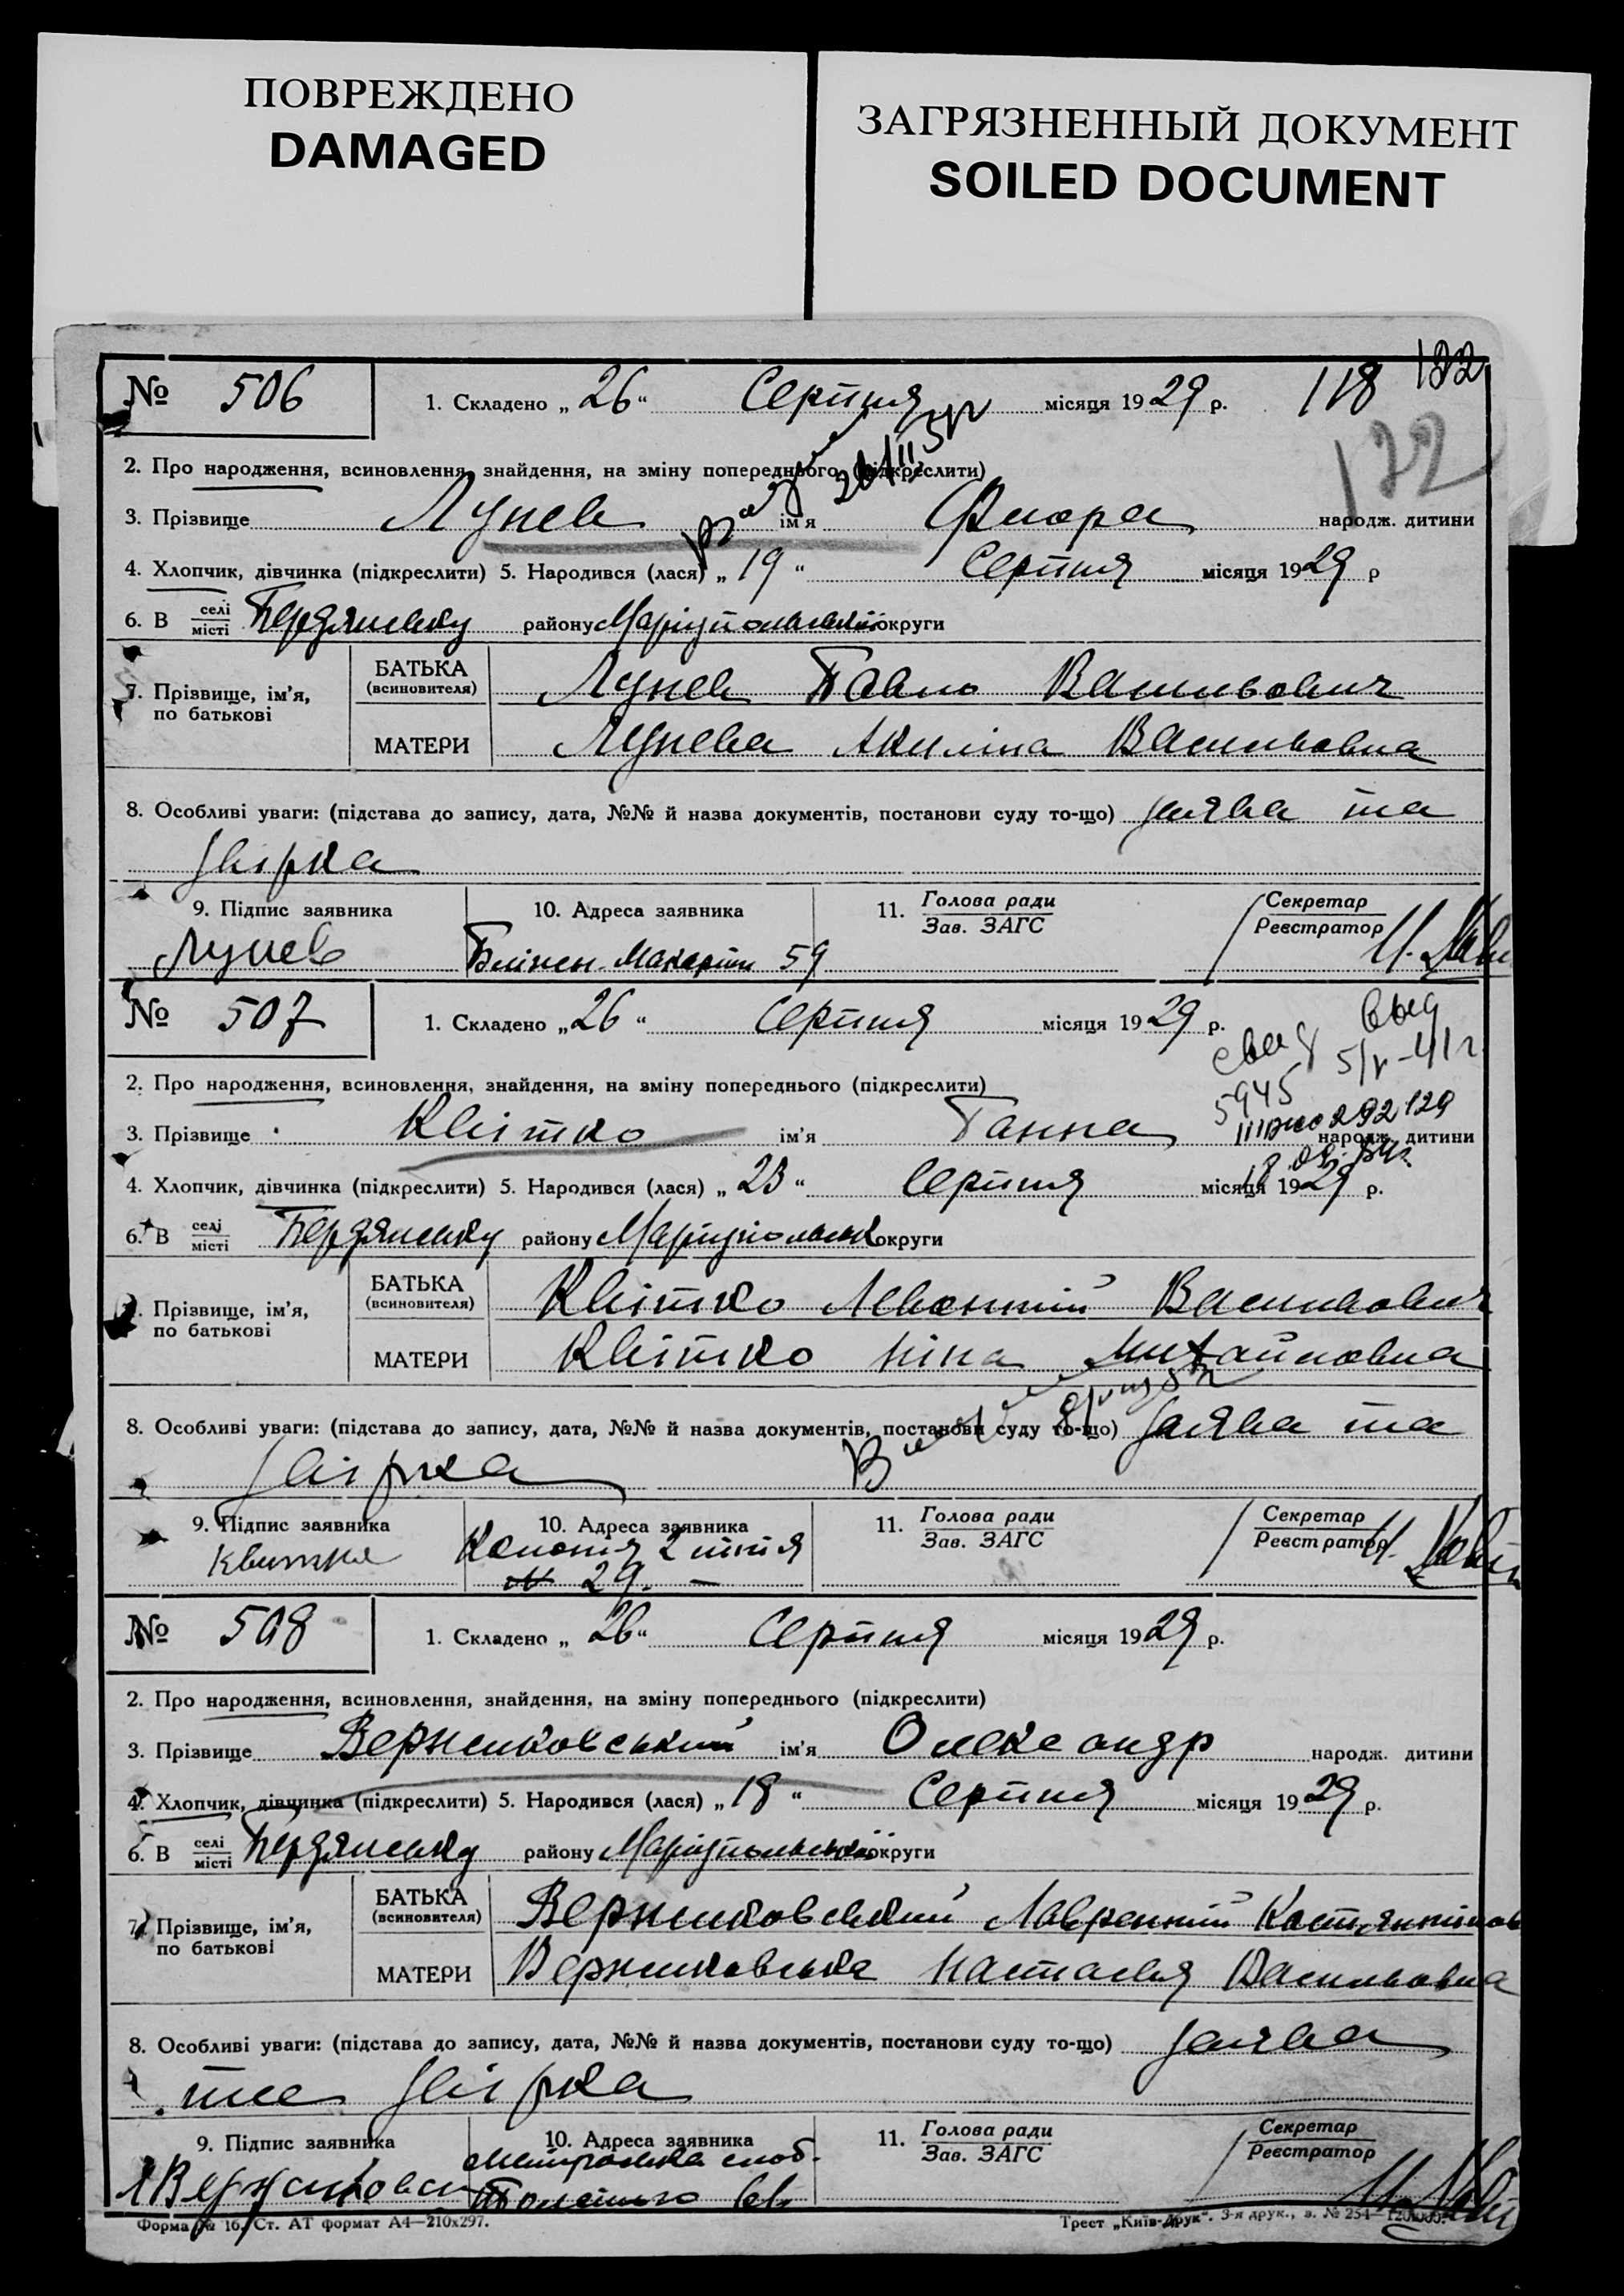 ПОВРЕЖДЕНО
DAMAGED
ЗАГРЯЗНЕННЫЙ ДОКУМЕНТ
SOILED DOCUMENT
122
№ 506 1. Складено „26“ Серпня місяця 1929 р. 118
122
2. Про народження, всиновлення, знайдення, на зміну попереднього (підкреслити)
3. Прізвище Лунев ім'я Флора народж. дитини
4. Хлопчик, дівчинка (підкреслити) 5. Народився (лася) „19“ Серпня місяця 1929 р
6. В селі місті Бердянську району Маріупольської округи
7. Прізвище, ім'я, по батькові
БАТЬКА (всиновителя) Лунев Павло Васильович
МАТЕРИ Лунева Акиліна Васильовна
8. Особливі уваги: (підстава до запису, дата, №№ й назва документів, постанови суду то-що) заява та
звірка
9. Підпис заявника 10. Адреса заявника 11. Голова ради Зав. ЗАГС Секретар Реєстратор
Лунев 59
№ 507 1. Складено „26“ Серпня місяця 1929 р.
свид выд
5945 5/V-41 г
2. Про народження, всиновлення, знайдення, на зміну попереднього (підкреслити)
3. Прізвище Квітко ім'я Ганна народж. дитини
4. Хлопчик, дівчинка (підкреслити) 5. Народився (лася) „23“ Серпня місяця 1929 р.
6. В селі місті Бердянську району Маріупольськ округи
7. Прізвище, ім'я, по батькові
БАТЬКА (всиновителя) Квітко Левонтій Васильович
МАТЕРИ Квітко Ніна Михайловна
8. Особливі уваги: (підстава до запису, дата, №№ й назва документів, постанови суду то-що) заява та
звірка
9. Підпис заявника 10. Адреса заявника 11. Голова ради Зав. ЗАГС Секретар Реєстратор
Колонія 2 лінія
№ 29. —
№ 508 1. Складено „26“ Серпня місяця 1929 р.
2. Про народження, всиновлення, знайдення, на зміну попереднього (підкреслити)
3. Прізвище Вержиковський ім'я Олександр народж. дитини
4. Хлопчик, дівчинка (підкреслити) 5. Народився (лася) „18“ Серпня місяця 1929 р.
6. В селі місті Бердянську району Маріупольської округи
7. Прізвище, ім'я, по батькові
БАТЬКА (всиновителя) Вержиковський Лаврентій Костянтинов
МАТЕРИ Вержиковська Настасья Васильовна
8. Особливі уваги: (підстава до запису, дата, №№ й назва документів, постанови суду то-що) заява
та звірка
9. Підпис заявника 10. Адреса заявника 11. Голова ради Зав. ЗАГС Секретар Реєстратор
слоб.
Толстого
Форма № 16. Ст. АТ формат А4—210х297. Трест „Київ-Друк“. 3-я друк., з. № 254